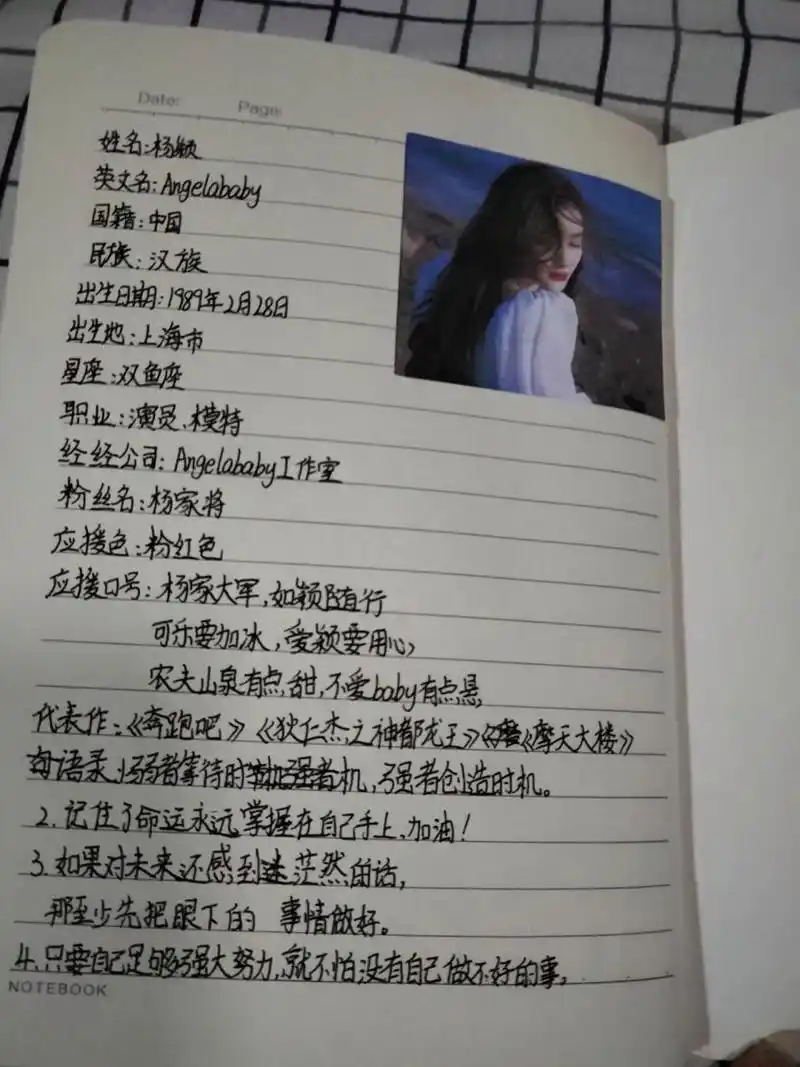 Date: Page:
姓名:杨颖
英文名:Angelababy
国籍:中国
民族:汉族
出生日期:1989年2月28日
出生地:上海市
星座:双鱼座
职业:演员、模特
经经公司:Angelababy工作室
粉丝名:杨家将
应援色:粉红色
应援口号:杨家大军,如颖随行
可乐要加冰,爱颖要用心
农夫山泉有点甜,不爱baby有点悬
代表作:《奔跑吧》《狄仁杰之神都龙王》《摩天大楼》
语录 1.弱者等待时机,强者创造时机。
2.记住了命运永远掌握在自己手上,加油!
3.如果对未来还感到迷茫然的话,
那至少先把眼下的 事情做好。
4.只要自己足够强大努力,就不怕没有自己做不好的事,
NOTEBOOK